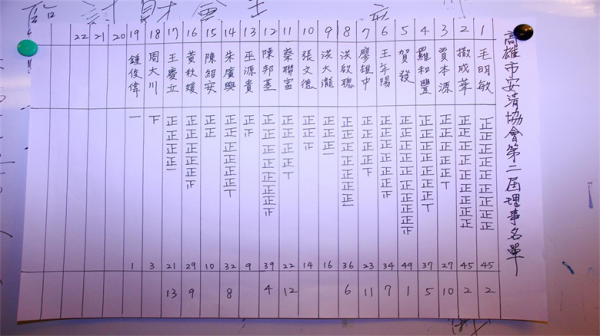 高雄市安清協會第二屆理事名單
1 毛明敏 正正正正正正正正正 45 2
2 成華 正正正正正正正正正 45 2
3 賈本源 正正正正正丅 27 10
4 羅和豐 正正正正正正正丅 37 5
5 賀發 正正正正正正正正正正 49 1
6 王年陽 正正正正正正正 34 7
7 廖雄中 正正正正下 23 11
8 洪敏聰 正正正正正正正一 36 6
9 洪大瀧 正正正一 16
10 張文德 正正正 14
11 蔡聯富 正正正正丅 22 12
12 陳邦 正正正正正正正正 39 4
13 巫源貴 正正 9
14 朱廣興 正正正正正正丅 32 8
15 陳安 正正 10
16 黃媛 正正正正正正 29 9
17 王慶立 正正正正一 21 13
18 周大川 下 3
19 鍾俊偉 一 1
20
21
22